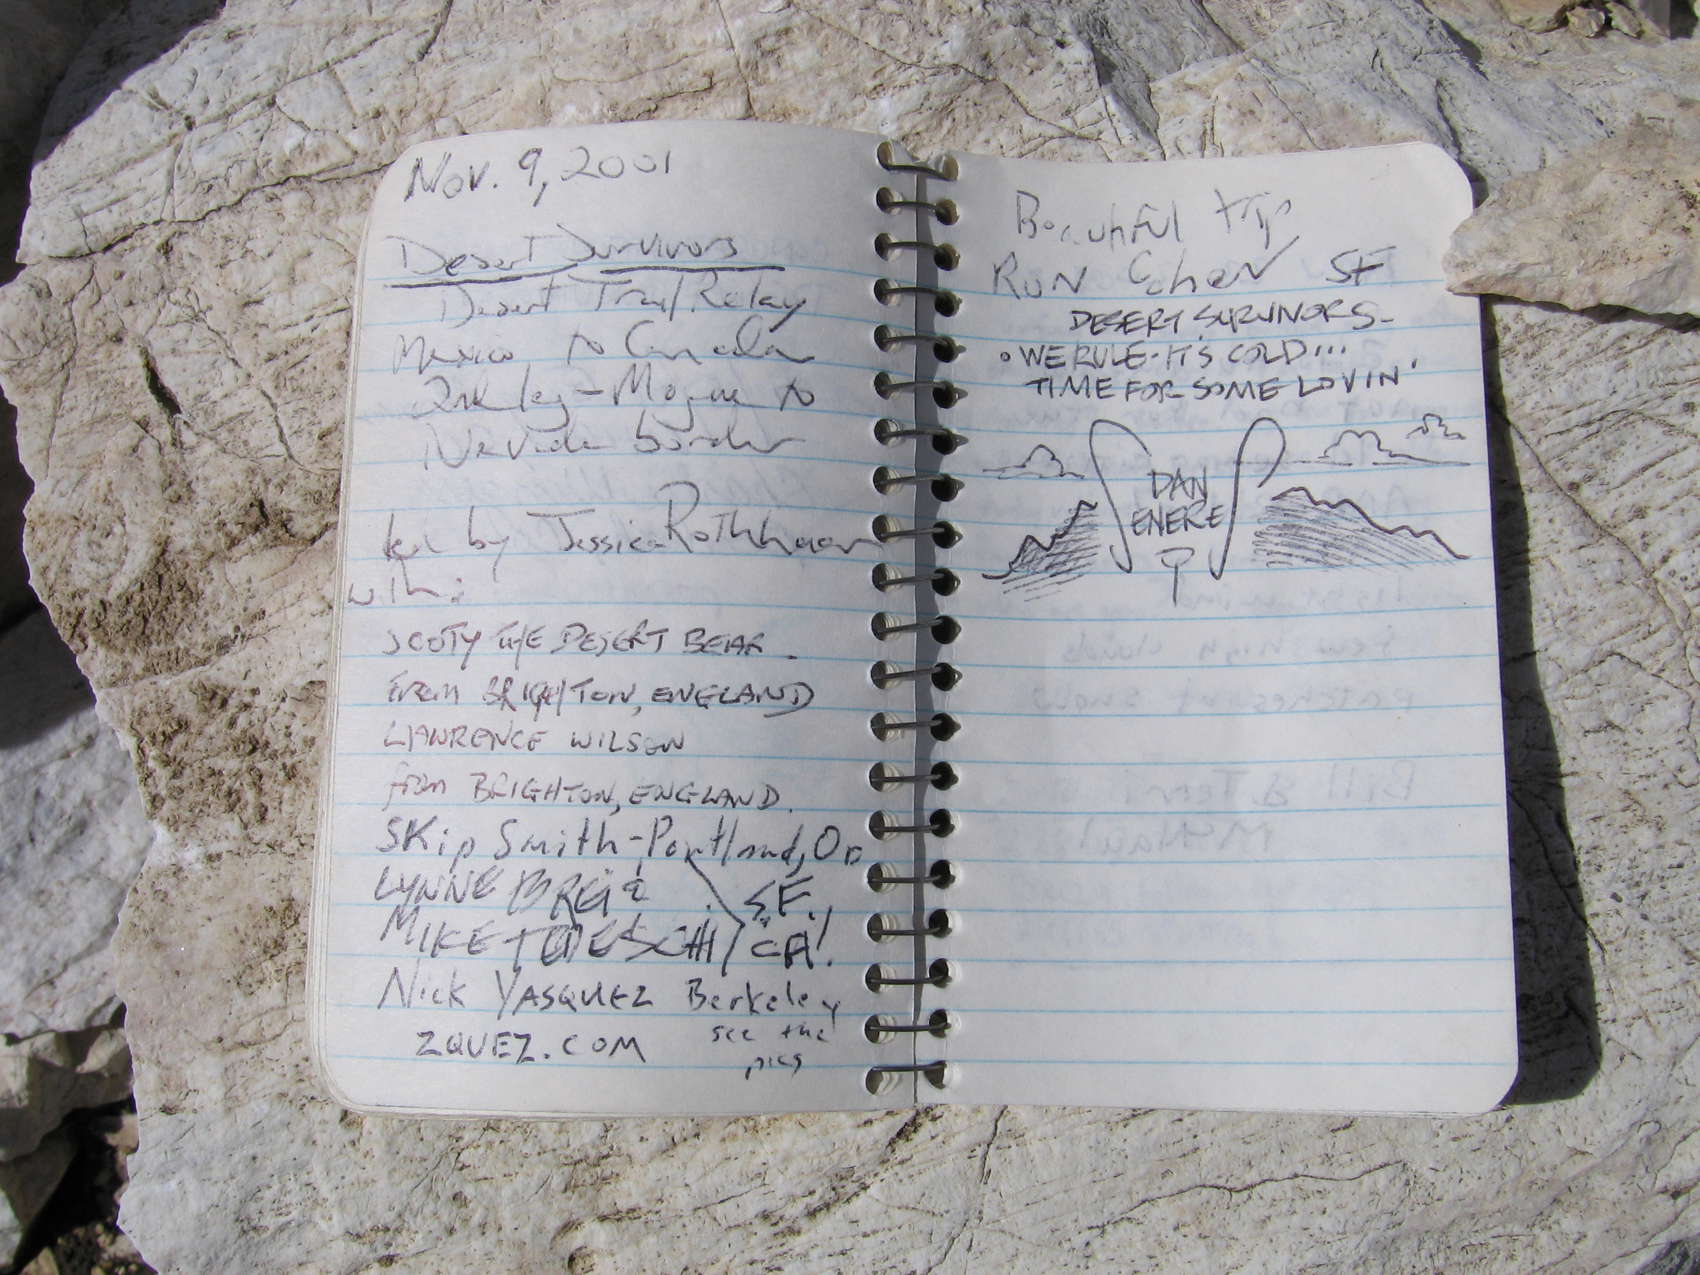 Nov. 9, 2001
Desert Survivors
Desert Trail Relay
Mexico to Canada
to
Nevada border
led by Jessica Rothhaar
with:
SCOTY THE DESERT BEAR
from BRIGHTON, ENGLAND
LAWRENCE WILSON
from BRIGHTON, ENGLAND.
Skip Smith - Portland, Or
LYNNE
MIKE TEDESCHI S.F. CA!
Nick VASQUEZ Berkeley
ZQUEZ.COM see the
pics
Beautiful trip
RON Cohen SF
DESERT SURVIVORS-
• WE RULE - IT'S COLD...
TIME FOR SOME LOVIN'
DAN
ENERE